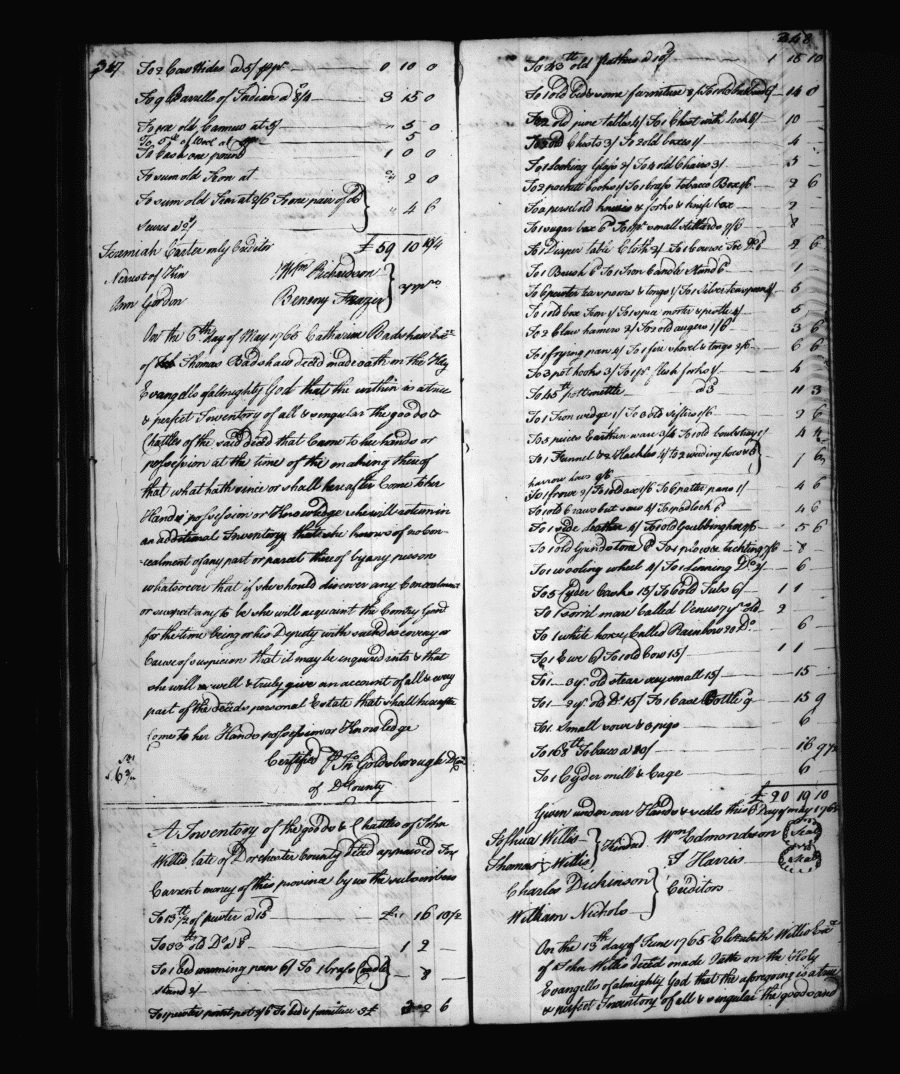 347
To 2 Cow Hides a 5/ pr — 0 10 0
To 9 Barrells of Indian a 8/4 — 3 15 0
To old at 5/ — " 5 0
To of Wool at 5
To Cash one pound 1 0 0
To sum old Iron at " 2 0
To sum old Iron at 2/6 To one pair of old
" 4 6
Jeremiah Carter only Creditor £59 10 10¼
Nearest of Kin Wm Richardson
Ann Gordon Benony Frazer
On the 6th day of May 1765 Catharine Badshaw
of Thomas Badshaw deced made oath on the Holy
Evangells of almighty God that the within is a true
& perfect Inventory of all & singular the goods &
Chattles of the said deced that Came to her hands or
possession at the time of the making thereof
that what hath since or shall hereafter Come to her
Hands possession or Knowledge she will return in
an additional Inventory that she knows of no Con
cealment of any part or parcel thereof by any person
whatsoever that if she should discover any Concealment
or suspect any to be she will acquaint the Comry Genl
for the time being or his Deputy with such discovery or
Cause of suspicion that it may be inquired into & that
she will well & truly give an account of all & every
part of the deceds personal Estate that shall hereafter
Come to her Hands possession or Knowledge
Certified Jno Goldsborough
of D County
A Inventory of the goods & Chattles of John
Willis late of Dorchester County deced appraised In
Current money of this province by us the subscribers
To 13½ of pewter a 15d — £" 16 10½
To 33 old Do a 8d — 1 2 —
To 1 bed warming pan 6/ To 1 brass Candle
stand 2/ — 8 —
To 1 pewter pint pot 2/6 To bed & furniture 2 6
348
To 43 old feathers a 10d 1 15 10
To 1 old bed & some furniture 14 0
To 2 old pine tables 4/ To 1 Chest with lock 6/ — 10 —
To Chests 3/ To 2 old boxes 1/ — 4 —
To 1 looking Glass 2/ To 4 old Chairs 3/ — 5 —
To 2 pockett books 1/ To 1 brass Tobacco Box 1/6 — 2 6
To a parcel old knives & forks & knife box — 2
To 1 sugar box 6d To 1 pr small Stilliards 7/6 — 8
To 1 Diaper table Cloth 2/ To 1 Course Do 6d 2 6
To 1 Brush 6d To 1 Iron Candle Stand 6d — 1
To 6 pewter tea spoons & tongs 1/ To 1 Silver tea spoon 4/ — 5
To 1 old box Iron 1/ To 1 spice morter & pestle 4/ — 5
To 2 Claw hamers 2/ To 2 old augers 1/6 — 3 6
To 1 frying pan 4/ To 1 fire shovel & tongs 2/6 — 6 6
To 3 pot hooks 3/ To 1 pr flesh forks 1/ — 4
To 45 pott mettle a 3d 11 3
To 1 Iron wedge 1/ To 3 old sifters 1/6 — 2 6
To 3 pieces Earthen ware 3/4 To 1 old bowl tray 1/ 4 4
To 1 Funnel & 2 Hackles 4/ To 2 weeding hoes & 1
harrow hoe 2/6 — 1 6
To 1 frowe 2/ To 1 old ax 1/6 To 6 patter pans 1/ 4 6
To 1 old Craws but saw 4/ To 1 padlock 6d 4 6
To 1 side leather 4/ To 1 old Grubbing hoe 1/6 — 5 6
To 1 old Grindstone 6d To 1 plow & tackling 7/6 — 8 —
To 1 wooling wheel 4/ To 1 Linning Do 2/ — 6
To 5 Cyder Casks 15/ To 6 old Tubs 6/ 1 1
To 1 sorril mare Called Venus 7 yrs old 2
To 1 white horse Called Rainbow 20 Do 6
To 1 Ewe 6/ To 1 old Cow 15/ 1 1
To 1 3 yr old stear very small 15/ — 15
To 1 2 yr old Do 15/ To 1 Case Bottle 9 15 9
To 1 Small sow & 3 pigs — 6
To 168 Tobacco a 20/ 16 9½
To 1 Cyder mill & Cage — 6
£20 19 10
Given under our Hands & seals this 8 Day of may 1765
Joshua Willis Wm Edmondson Seal
Thomas Willis Kindred J Harris Seal
Charles Dickinson
William Nichols Creditors
On the 13th day of June 1765 Elizabeth Willis
of John Willis deced made Oath on the Holy
Evangells of almighty God that the aforegoing is a true
& perfect Inventory of all & singular the goods and